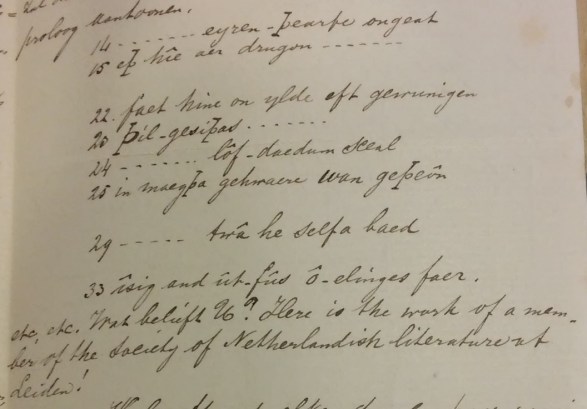 proloog aantoonen.
14 - - - - - - - eyren-þearfe ongeat
15 eþ hîe aer drugon - - - - - - -
22. faet hine on ylde eft gewunigen
23 þil-gesiþas - - - - - - -
24 - - - - - - - lôf-daedum sceal
25 in maegþa gehwaere wan geþeôn
29 - - - - - twâ he selfa baed
33 îsig and ût-fûs ô-elinges faer.
etc, etc. Wat belieft U? Here is the work of a mem-
ber of the Society of Netherlandish literature at
Leiden!